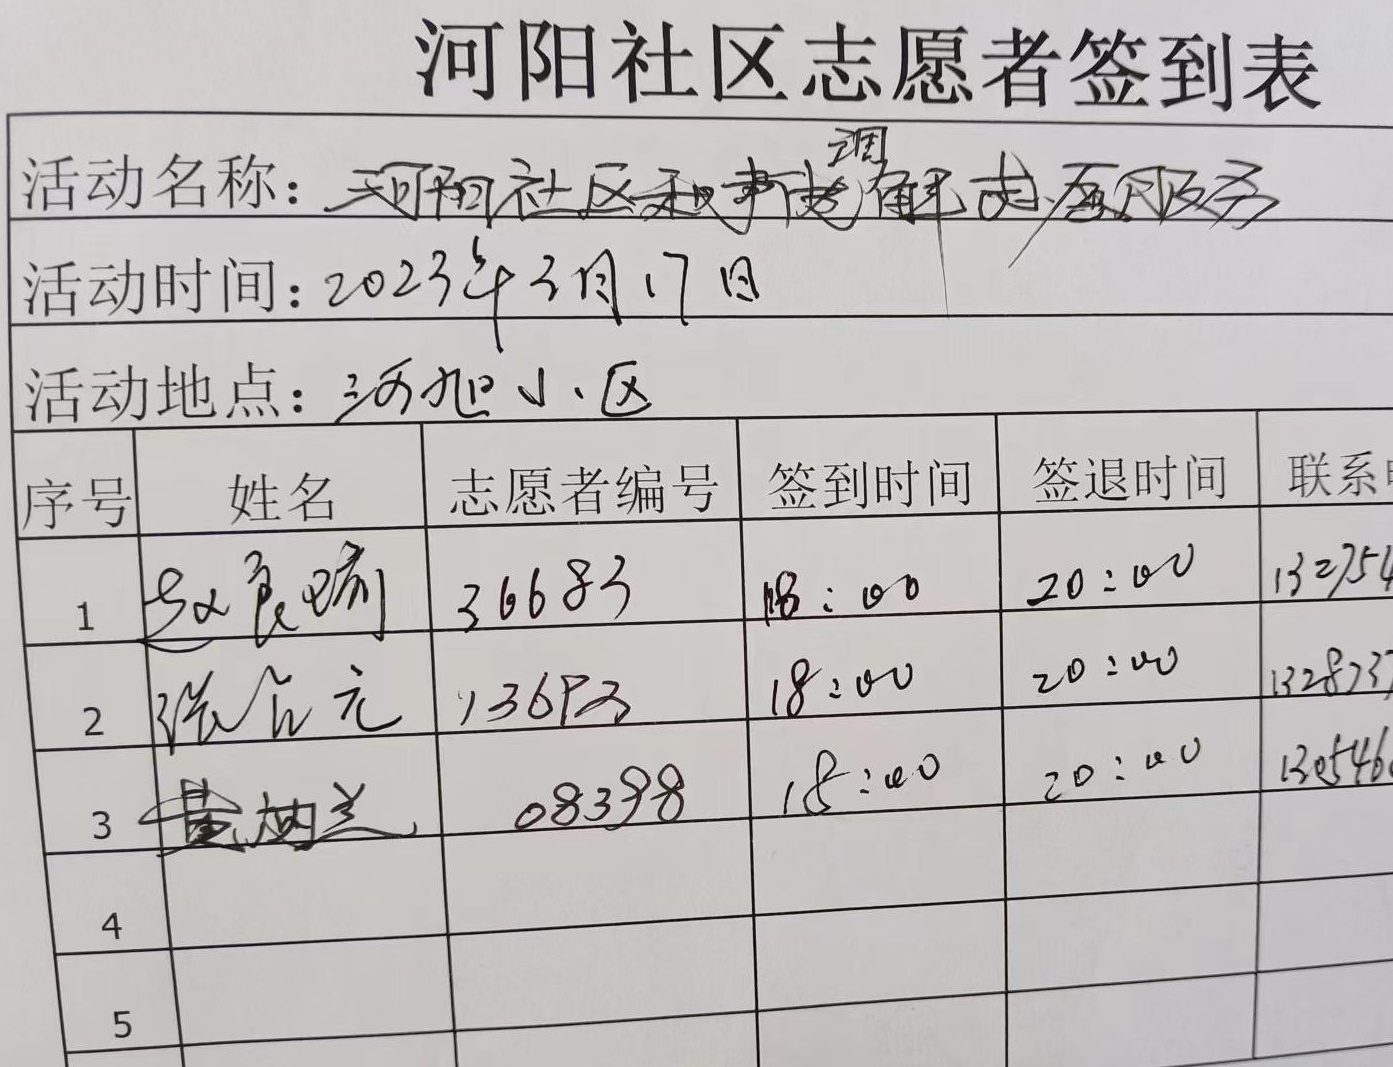 河阳社区志愿者签到表
活动名称：河阳社区和事佬调解志愿服务
活动时间：2023年3月17日
活动地点：河旭小区
序号 姓名 志愿者编号 签到时间 签退时间 联系
1 36683 18:00 20:00 132754
2 张 元 18:00 20:00 1328737
3 黄 兰 08398 18:00 20:00 130546
4
5